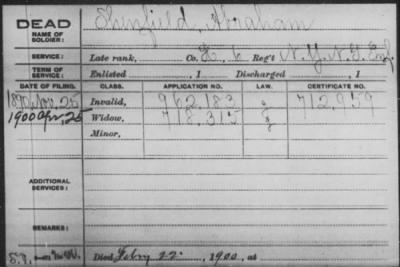 DEAD
NAME OF SOLDIER: Shinfield, Abraham
SERVICE: Late rank, Co. E. 6 Reg't N.Y.
TERM OF SERVICE: Enlisted , 1 Discharged , 1
DATE OF FILING. CLASS. APPLICATION NO. LAW. CERTIFICATE NO.
1890, Nov. 25 Invalid, 962,183 712,959
1900 Apr, 26 Widow, 718,315
Minor,
ADDITIONAL SERVICES:
REMARKS:
Died Feby 22, 1900, at